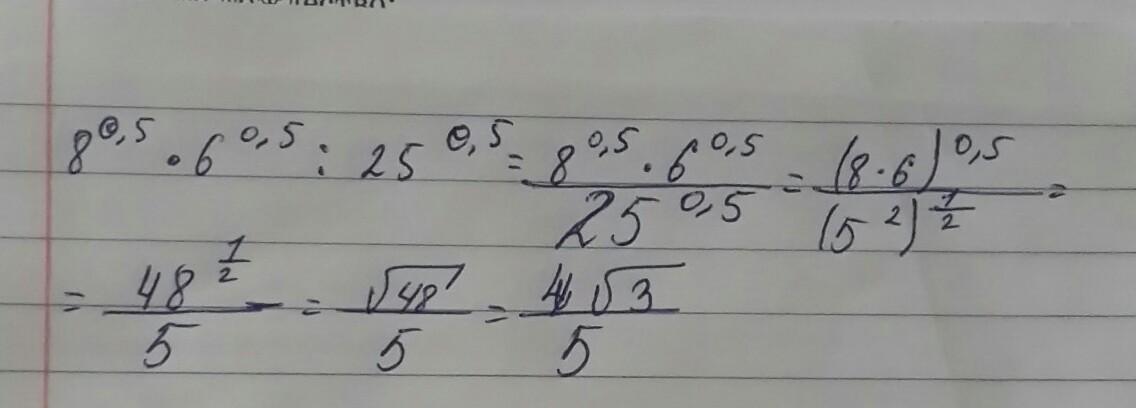 8^0,5 · 6^0,5 : 25^0,5 = (8^0,5 · 6^0,5)/(25^0,5) = ((8·6)^0,5)/((5^2)^(1/2)) =
= (48^(1/2))/5 = √48/5 = 4√3/5